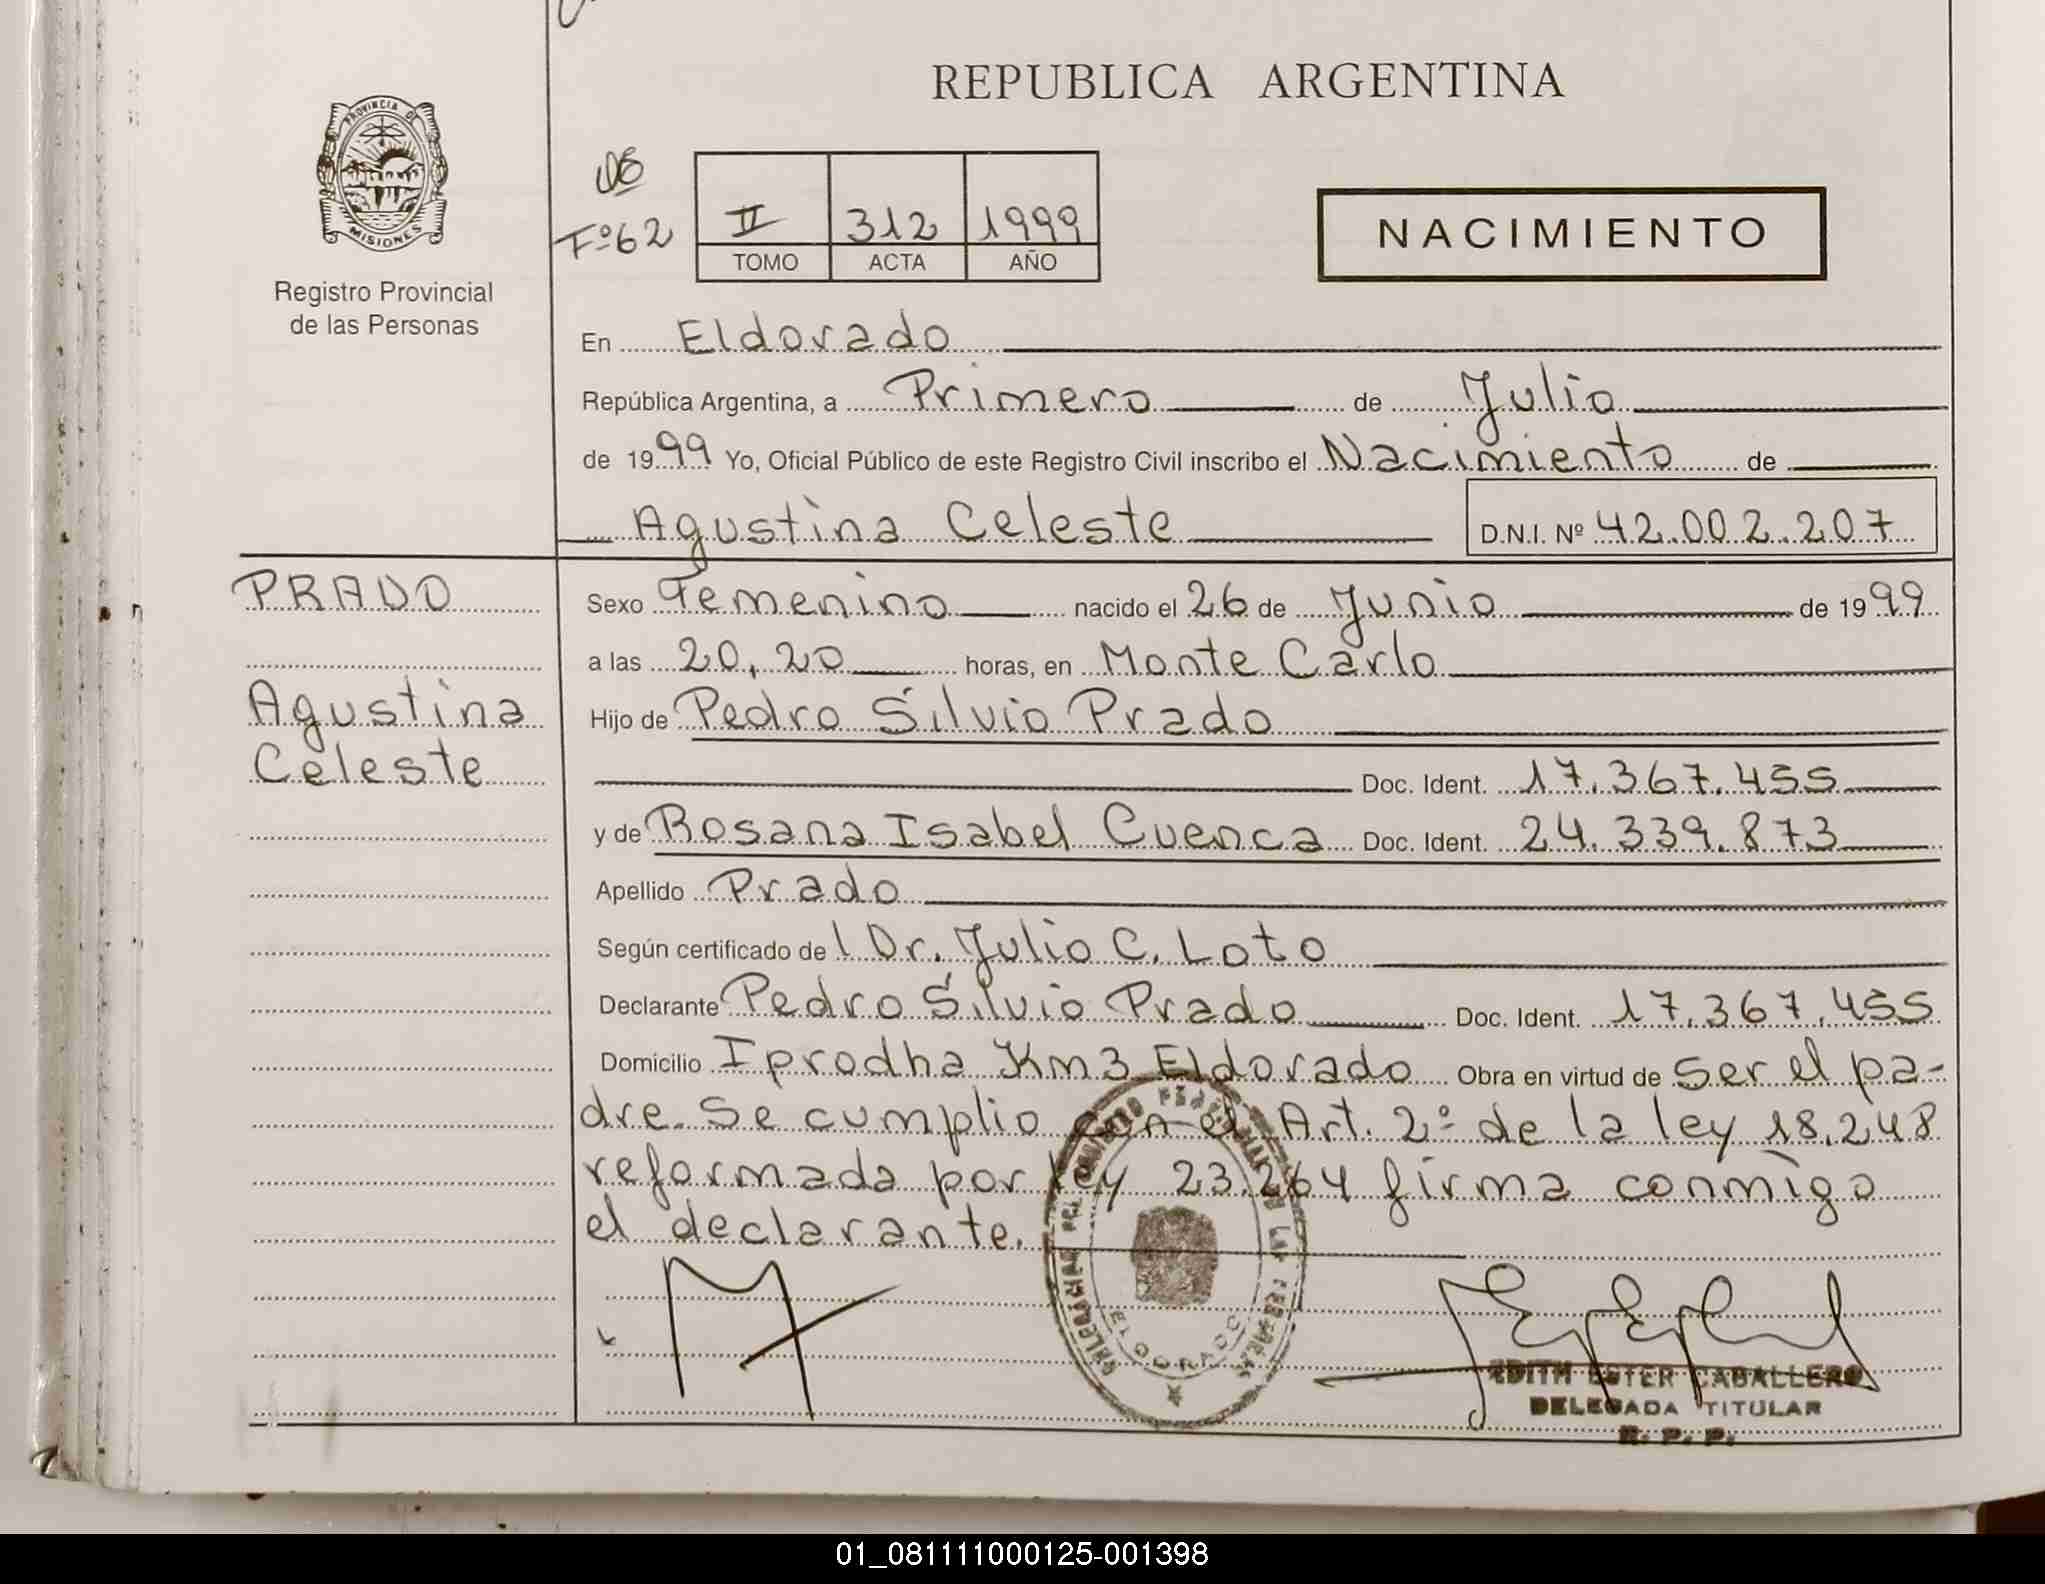 REPUBLICA ARGENTINA
PROVINCIA DE
MISIONES
Registro Provincial
de las Personas
Fº 62
II 312 1999
TOMO ACTA AÑO
NACIMIENTO
En Eldorado
República Argentina, a Primero de Julio
de 1999 Yo, Oficial Público de este Registro Civil inscribo el Nacimiento de
Agustina Celeste D.N.I. Nº 42.002.207
PRADO
Agustina
Celeste
Sexo Femenino nacido el 26 de Junio de 1999
a las 20,20 horas, en Monte Carlo
Hijo de Pedro Silvio Prado
Doc. Ident. 17.367.455
y de Rosana Isabel Cuenca Doc. Ident. 24.339.873
Apellido Prado
Según certificado de l Dr. Julio C. Loto
Declarante Pedro Silvio Prado Doc. Ident. 17.367.455
Domicilio Iprodha Km3 Eldorado Obra en virtud de ser el pa-
dre. Se cumplio con el Art. 2º de la ley 18.248
reformada por ley 23.264 firma conmigo
el declarante.
ELDORADO
EDITH ESTER CABALLERO
DELEGADA TITULAR
R. P. P.
01_081111000125-001398